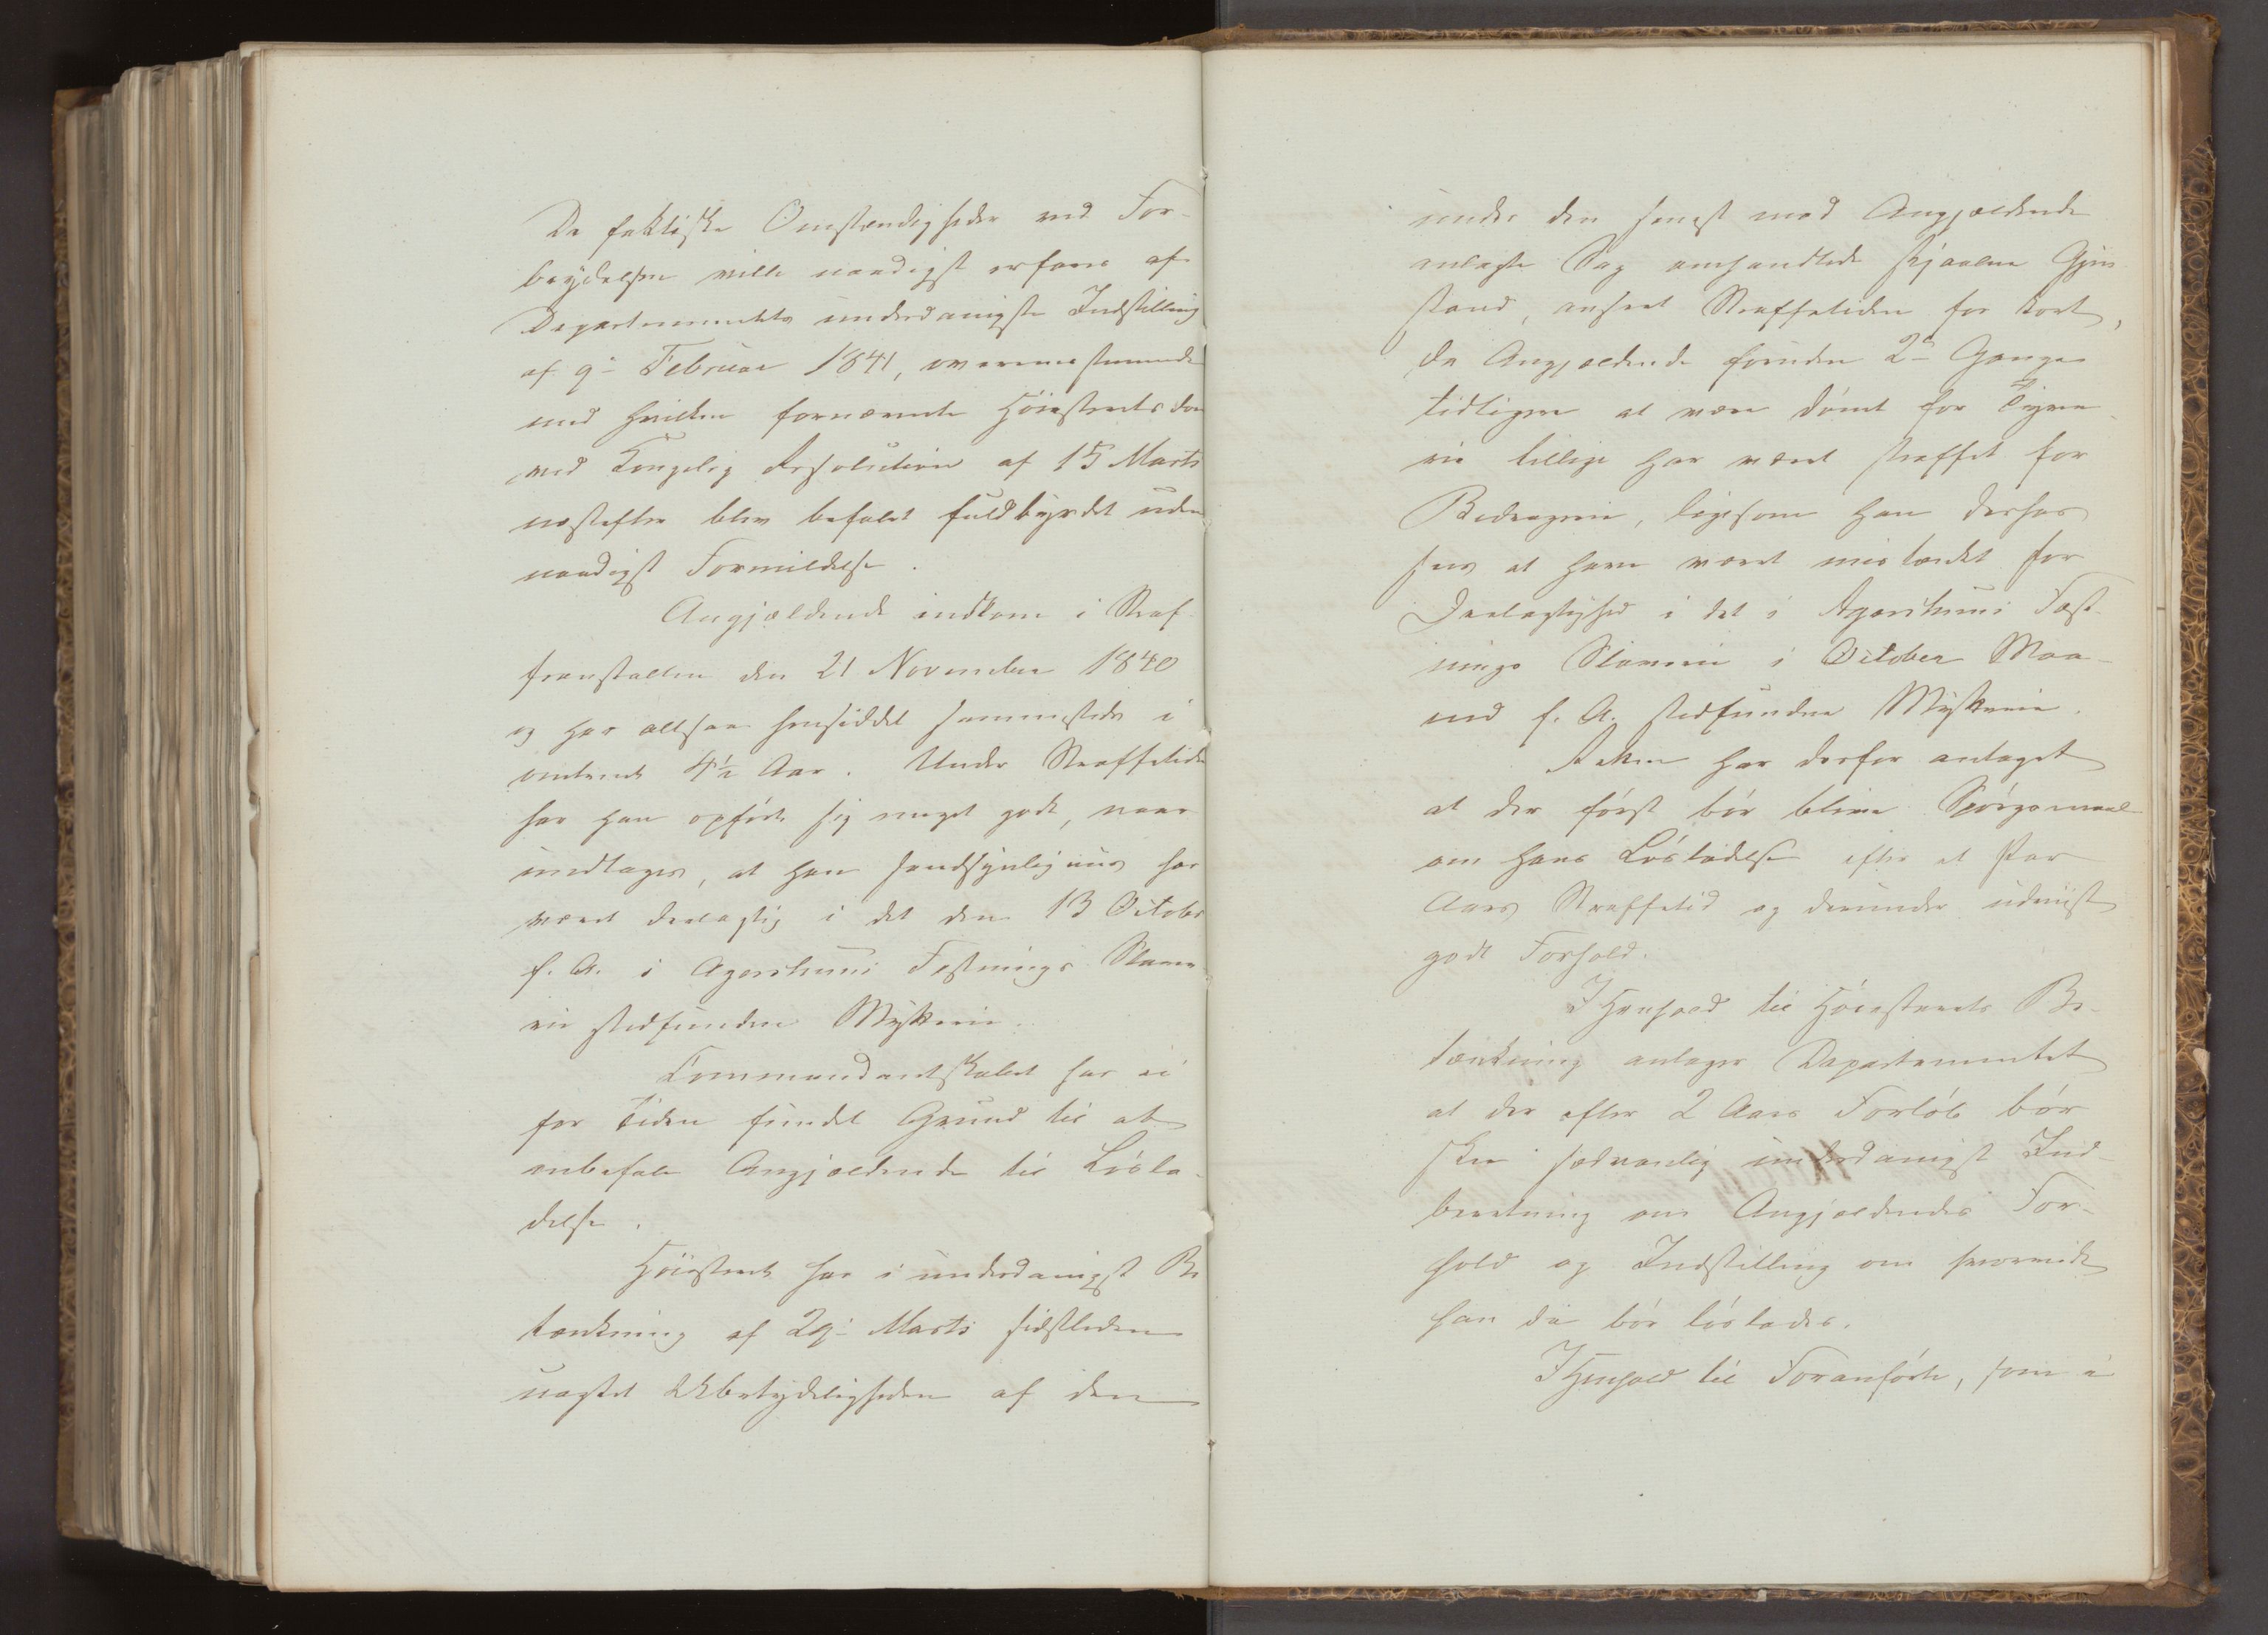 De faktiske Omstændigheder ved For-
brydelsen ville naadigst erfares af
Departementets underdanigste Indstilling
af 9de Februar 1841, overensstemmende
med hvilken fornævnte Høiesteretsdom
ved Kongelig Resolution af 15 Marts
næstefter blev befalet fuldbyrdet uden
naadigst Formildelse.
Angjældende indkom i Straf-
feanstalten den 21 November 1840
og har altsaa hensiddet sammesteds i
omtrent 4½ Aar. Under Straffetiden
har han opført sig meget godt, naar
undtages, at han sandsynligviis har
været deelagtig i det den 13 October
f. A. i Agershuus Festnings Slave
rie stedfundne Mytterie.
Commandantskabet har ei
for Tiden fundet Grund til at
anbefale Angjældende til Løsla-
delse.
Høiesteret har i underdanigst Be
tænkning af 29de Marts sidstleden
uagtet Ubetydeligheden af den
under den senest mod Angjældende
anlagte Sag omhandlede stjaalne Gjen
stand, anseet Straffetiden for kort,
da Angjældende foruden 2de Gange
tidligere at være dømt for Tyve-
rie tillige har været straffet for
Bedragerie, ligesom han derhos
sees at have været mistænkt for
Deelagtighed i det i Agershuus Fæst-
nings Slaverie i October Maa-
ned f. A. stedfundne Mytterie.
Retten har derfor antaget
at der først bør blive Spørgsmaal
om hans Løsladelse efter et Par
Aars Straffetid og derunder udviist
godt Forhold.
I Henhold til Høiesterets Be-
tænkning antager Departementet
at der efter 2 Aars Forløb bør
skee sædvanlig underdanigst Ind-
beretning om Angjældendes For-
hold og Indstilling om hvorvidt
han da bør løslades.
I Henhold til Foranførte, som i